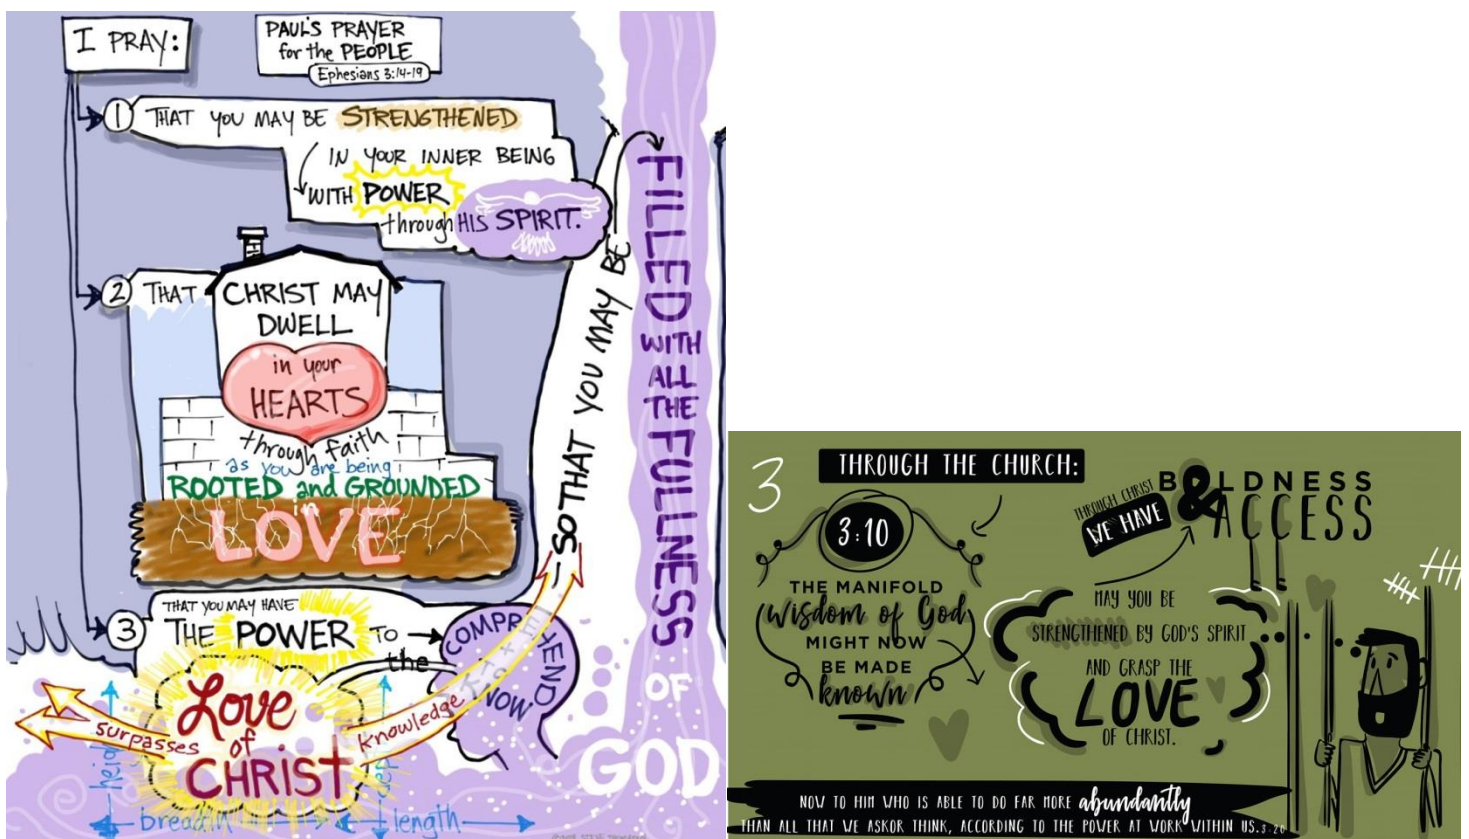 I PRAY:
PAUL'S PRAYER
for the PEOPLE
Ephesians 3:14-19
1 THAT YOU MAY BE STRENGTHENED
IN YOUR INNER BEING
WITH POWER
through HIS SPIRIT.
2 THAT CHRIST MAY
DWELL
in your
HEARTS
through faith
as you are being
ROOTED and GROUNDED
in
LOVE
3 THAT YOU MAY HAVE
THE POWER TO
COMPREHEND
the
KNOW
Love
of
CHRIST
surpasses
knowledge
breadth
length
SO THAT YOU MAY BE
FILLED WITH ALL THE FULLNESS
OF
GOD
3
THROUGH THE CHURCH:
3:10
THE MANIFOLD
wisdom of God
MIGHT NOW
BE MADE
known
THROUGH CHRIST
WE HAVE
BOLDNESS
& ACCESS
MAY YOU BE
STRENGTHENED BY GOD'S SPIRIT
AND GRASP THE
LOVE
OF CHRIST.
NOW TO HIM WHO IS ABLE TO DO FAR MORE abundantly
THAN ALL THAT WE ASKOR THINK, ACCORDING TO THE POWER AT WORK WITHIN US.3:20